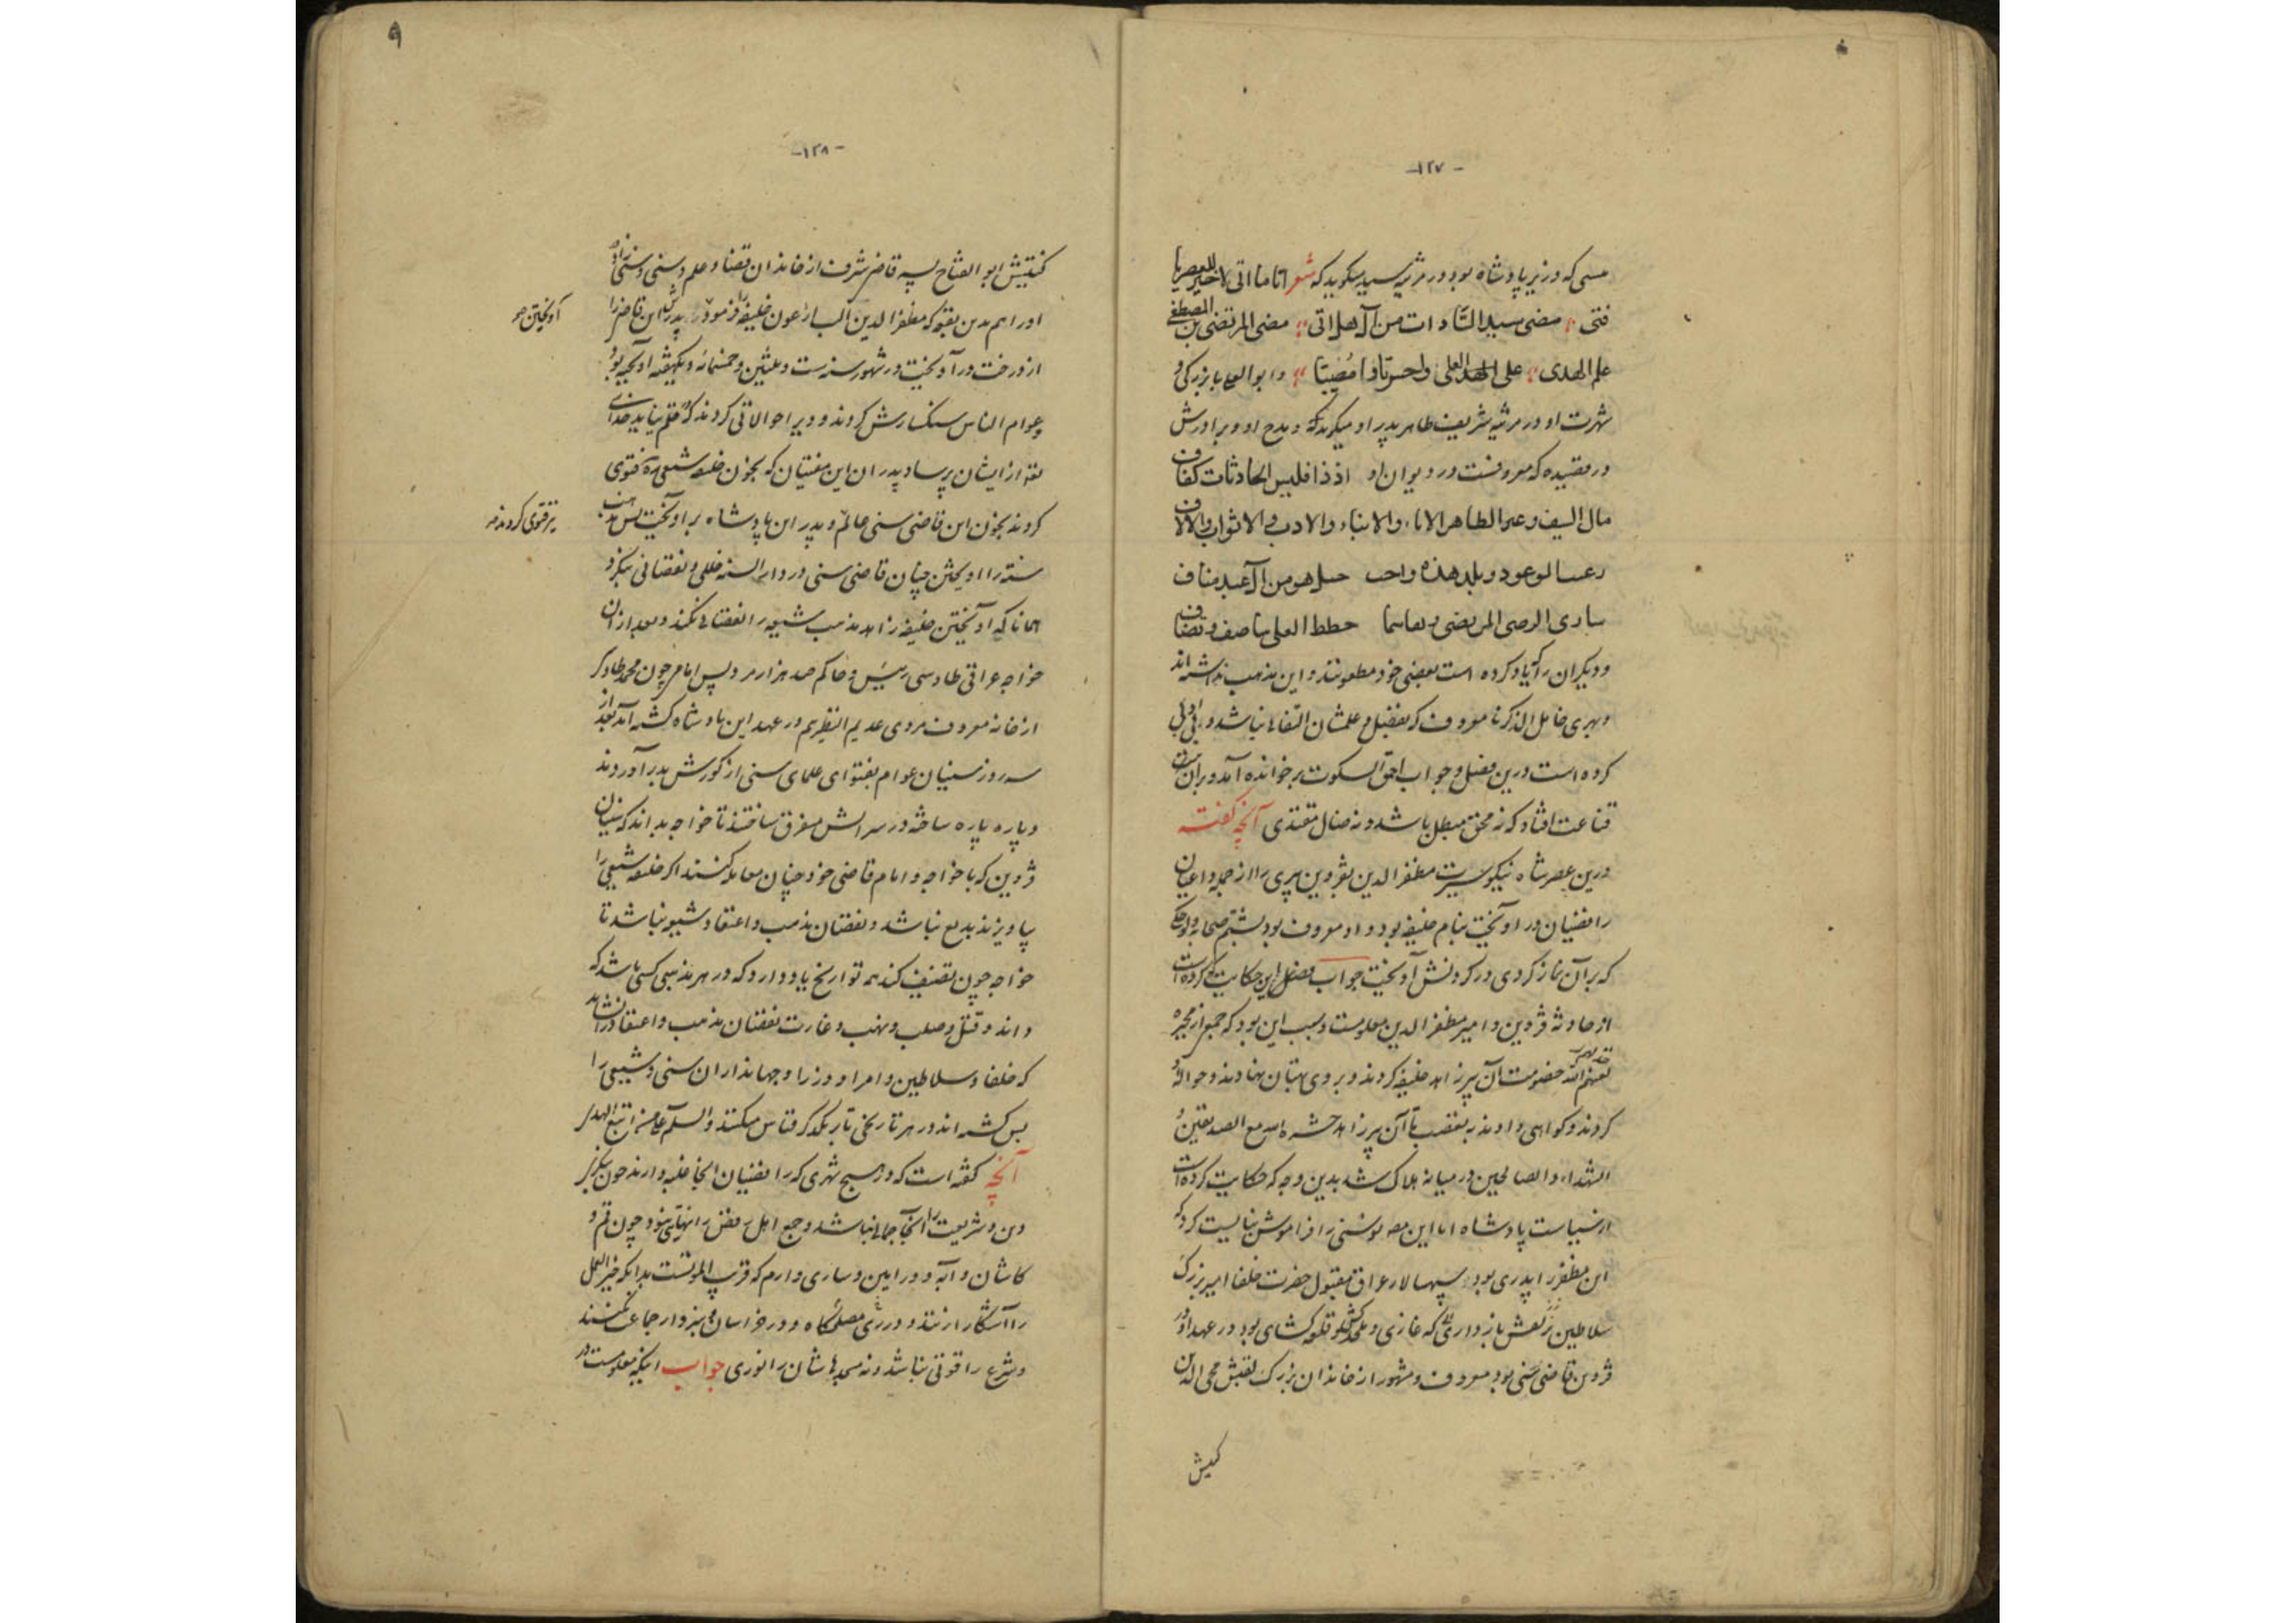 -۱۲۷-
عیسی که وزیر پادشاه بود در مرثیه سید میگوید که شعر
فتی مضی سید السادات من آل هل اتی مضی المرتضی بن المصطفی
علم الهدی علی الهدی العلی واحسرتا وا مصیبتا و ابو العلا با بزرگی و
شهرت او در مرثیه شریف طاهر پدر او میگوید که و مدح او و برادرش
در قصیده که معروفست در دیوان او الحادثات کفاف
مال السیف الطاهر الاباء والابناء والاداب والاثواب والالاف
من آل عبد مناف
المرتضی خطط العلی بتناصف وتصاف
و دیگران را که یاد کرده است بعضی خود مطعونند و این مذهب نداشته‌اند
خامل الذکر نا معروف که بفضل و علمشان التفات نباشد و
کرده است درین فصل و جواب احق السکوت بر خوانده آمد و بر آن
قناعت افتاد که نه محق مبطل باشد و نه ضال مقتدی آنچه گفته
درین عصر شاه نیکو سیرت مظفر الدین بقزوین پیری را از جمله اعیان
رافضیان در آویخت بنام خلیفه بود و او معروف بود بشتم صحابه و لوحکی
که بر آن نماز کردی در گردنش آویخت جواب فصل این حکایت که کرده است
از حادثه قزوین و امیر مظفر الدین معلومست و سبب این بود که جمعی از مجبره
خصومت آن پیر زاهد خلیفه کردند و بر وی بهتان نهادند و حواله
کردند و گواهی دادند بتعصب تا آن پیر زاهد حشره الله مع الصدیقین و
الشهداء و الصالحین در میانه هلاک شد بدین وجه که حکایت کرده است
از سیاست پادشاه اما این سنی را فراموش نبایست کرد که
این مظفر را پدری بود سپهسالار عراق مقبول حضرت خلفا امیر بزرگ
سلاطین بازداری که غازی و ملحدکش و قلعه گشای بود در عهد او در
قزوین قاضی سنی بود معروف و مشهور از خاندان بزرگ لقبش محی الدین
کنیتش
-۱۲۸-
کنیتش ابو الفتاح پسر قاضی شرف از خاندان قضا و علم و سنی و سنی زاده
او را هم بدین بقعه که مظفر الدین البارغون خلیفه را فرمود پدرش این قاضی را
از درخت در آویخت در شهور سنه ست و ثلثین و خمسمائه و یکهفته آویخته بود
و عوام الناس سنگسارش کردند و ویرا حوالاتی کردند که قلم نیاید خدای
از ایشان بپرساد پدران این مفتیان که بخون خلیفه شیعی فتوی
کردند بخون این قاضی سنی عالم و پدر این پادشاه بر آویخت پس مذهب
سنة را آویختن چنان قاضی سنی در دار السنه خللی و نقصانی نکرد
همانا که آویختن خلیفه زاهد مذهب شیعه را نقصانی نکند و بعد از آن
خواجه عراقی طاوسی رئیس و حاکم صد هزار مرد و پس امامی چون محمد
از خانه معروف مردی عدیم النظیر هم در عهد این پادشاه کشته آمد بعد از
سه روز سنیان عوام بفتوای علمای سنی از گورش بدر آوردند
و پاره پاره ساخته در سرایش متفرق ساختند تا خواجه بداند که سنیان
قزوین که با خواجه و امام قاضی خود چنان معامله کنند اگر خلیفه شیعی را
بیاویزند بدیع نباشد و نقصان مذهب و اعتقاد شیعه نباشد تا
خواجه چون تصنیف کند همه تواریخ یاد دارد که در هر مذهبی کسی باشد که
داند و قتل و صلب و نهب و غارت نقصان مذهب و اعتقاد را نشاید
که خلفا و سلاطین و امرا و وزرا و جهانداران سنی و شیعی را
بس کشته‌اند در هر تاریخی تا بر یکدگر قیاس میکند والسلام علی من اتبع الهدی
آنچه گفته است که در هیچ شهری که رافضیان آنجا غلبه دارند چون بنگری
دین و شریعت را آنجا جمالی نباشد و جمع اهل رفض را بنود چون قم و
کاشان و آبه و ورامین و ساری و ارم که خیر العمل
را آشکارا زنند و در ری مصلحگاه و در خراسان سبزوار جماعت نکنند
و شرع را قوتی نباشد و نه مسجدهاشان را نوری جواب اینکه معلومست در
آویختن صو
نیز فتوی کردند صو